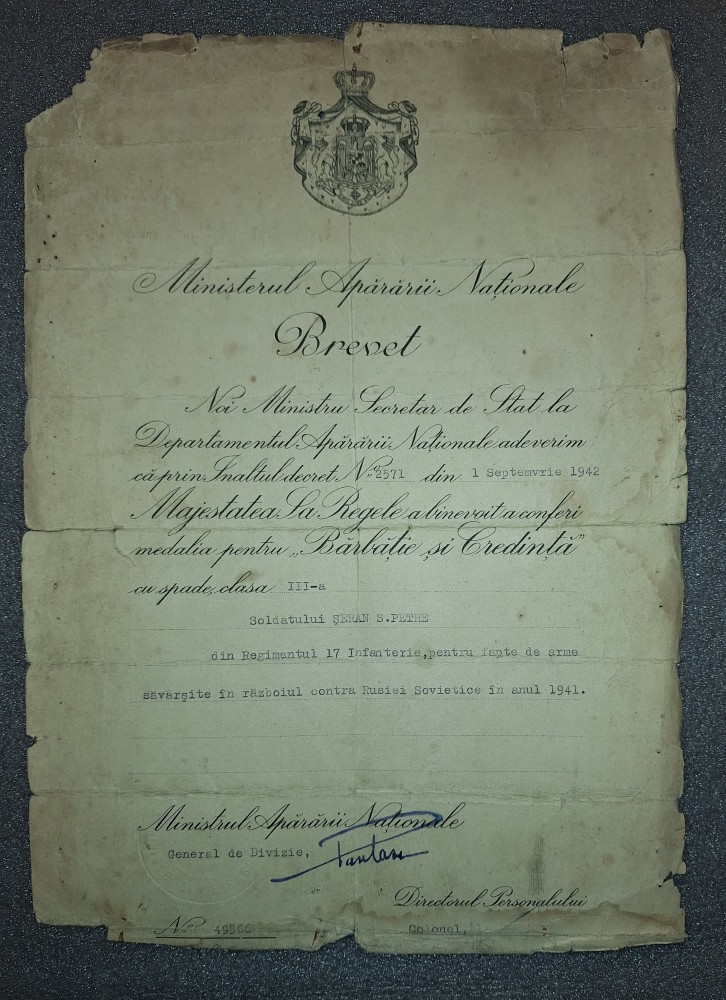 Ministerul Apărării Naționale
Brevet
Noi Ministru Secretar de Stat la
Departamentul Apărării Naționale adeverim
că prin Înaltul decret Nr. 2571 din 1 Septemvrie 1942
Majestatea Sa Regele a binevoit a conferi
medalia pentru „Bărbăție și Credință”
cu spade, clasa III-a
Soldatului ȘERAN S.PETRE
din Regimentul 17 Infanterie,pentru fapte de arme
săvârșite în războiul contra Rusiei Sovietice în anul 1941.
Ministrul Apărării Naționale
General de Divizie,
Directorul Personalului
No. 49566
Colonel,